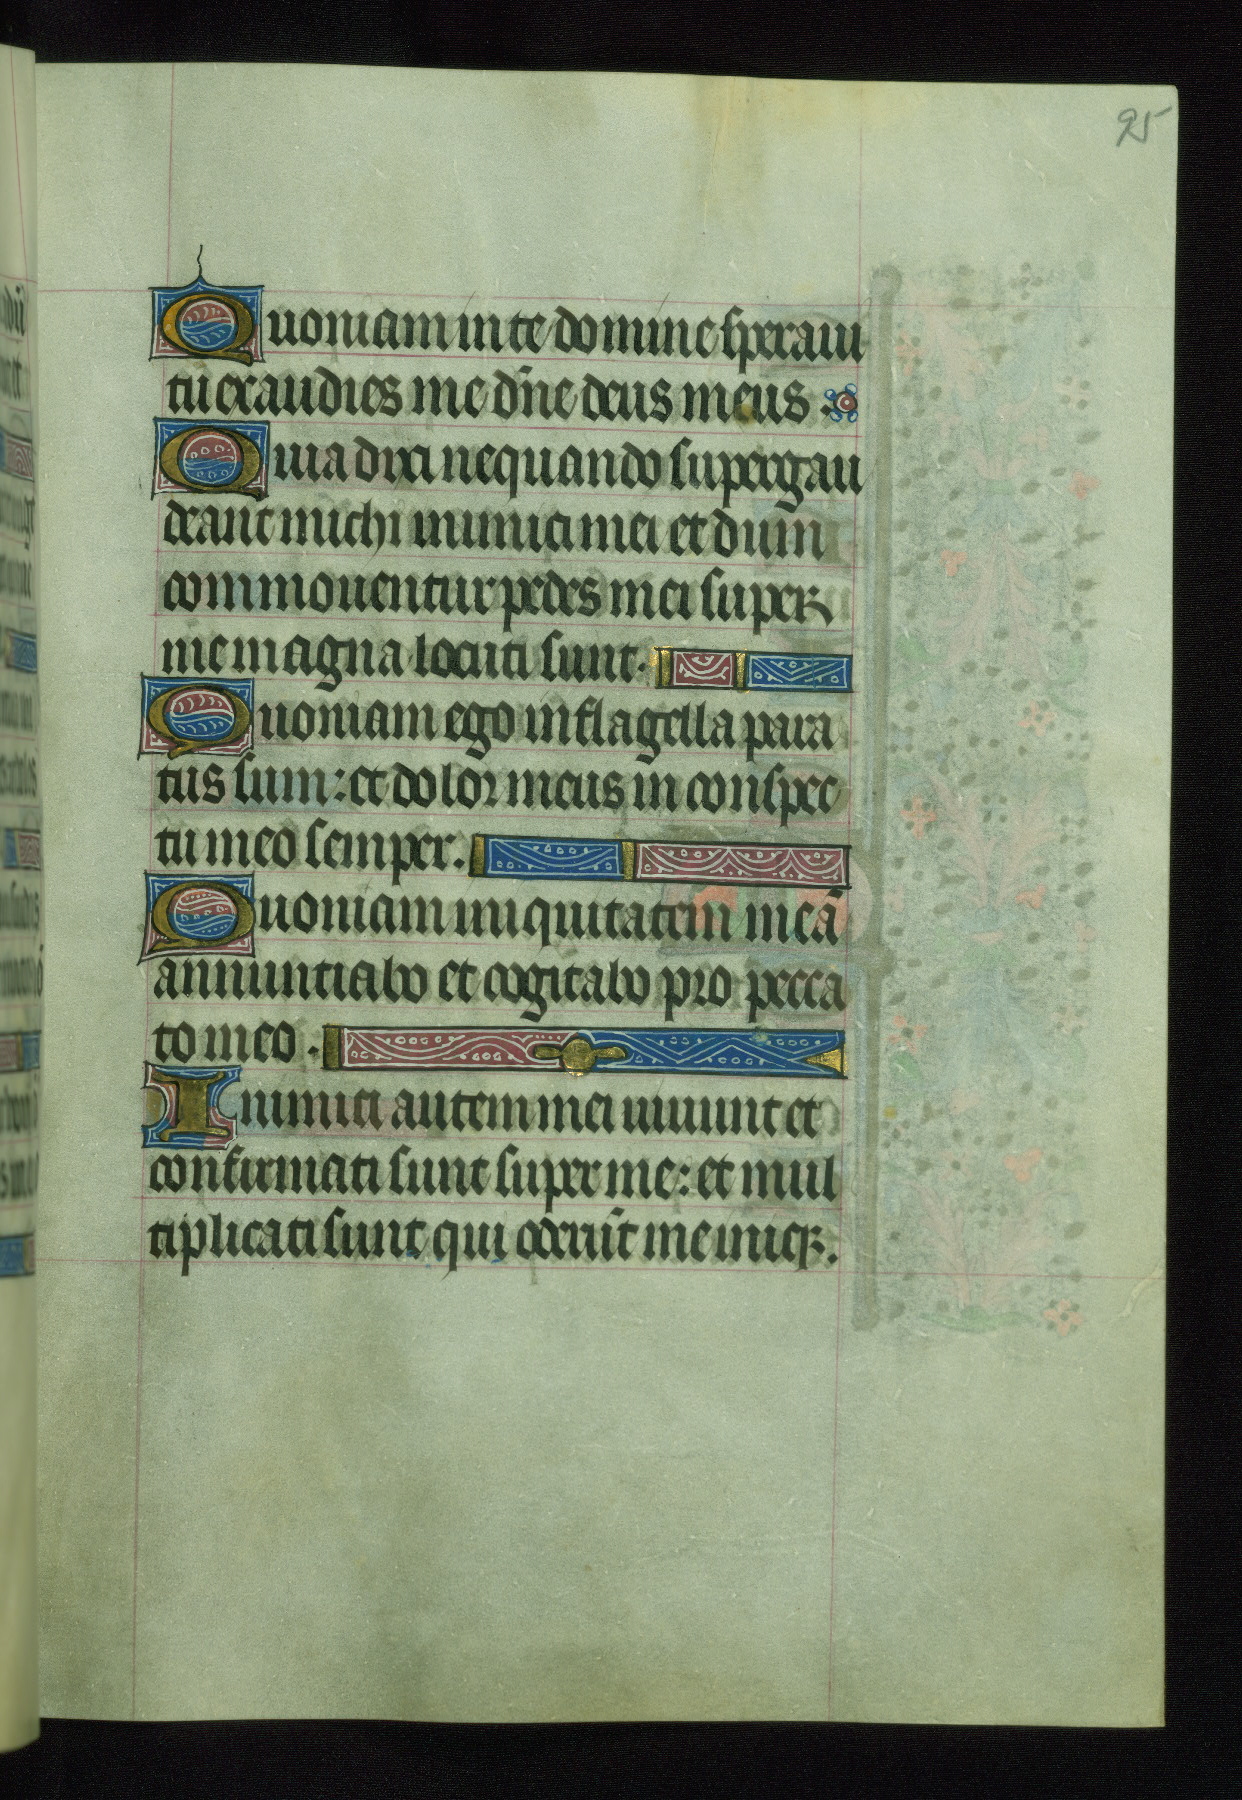 95
Quoniam in te domine speraui
tu exaudies me dñe deus meus.
Quia dixi nequando supergau
deant michi inimici mei et dum
commouentur pedes mei super
me magna locuti sunt.
Quoniam ego in flagella para
tus sum: et dolor meus in conspec
tu meo semper.
Quoniam iniquitatem meã
annuntiabo et cogitabo pro pecca
to meo.
Inimici autem mei uiuunt et
confirmati sunt super me: et mul
tiplicati sunt qui oderũt me iniq̃.